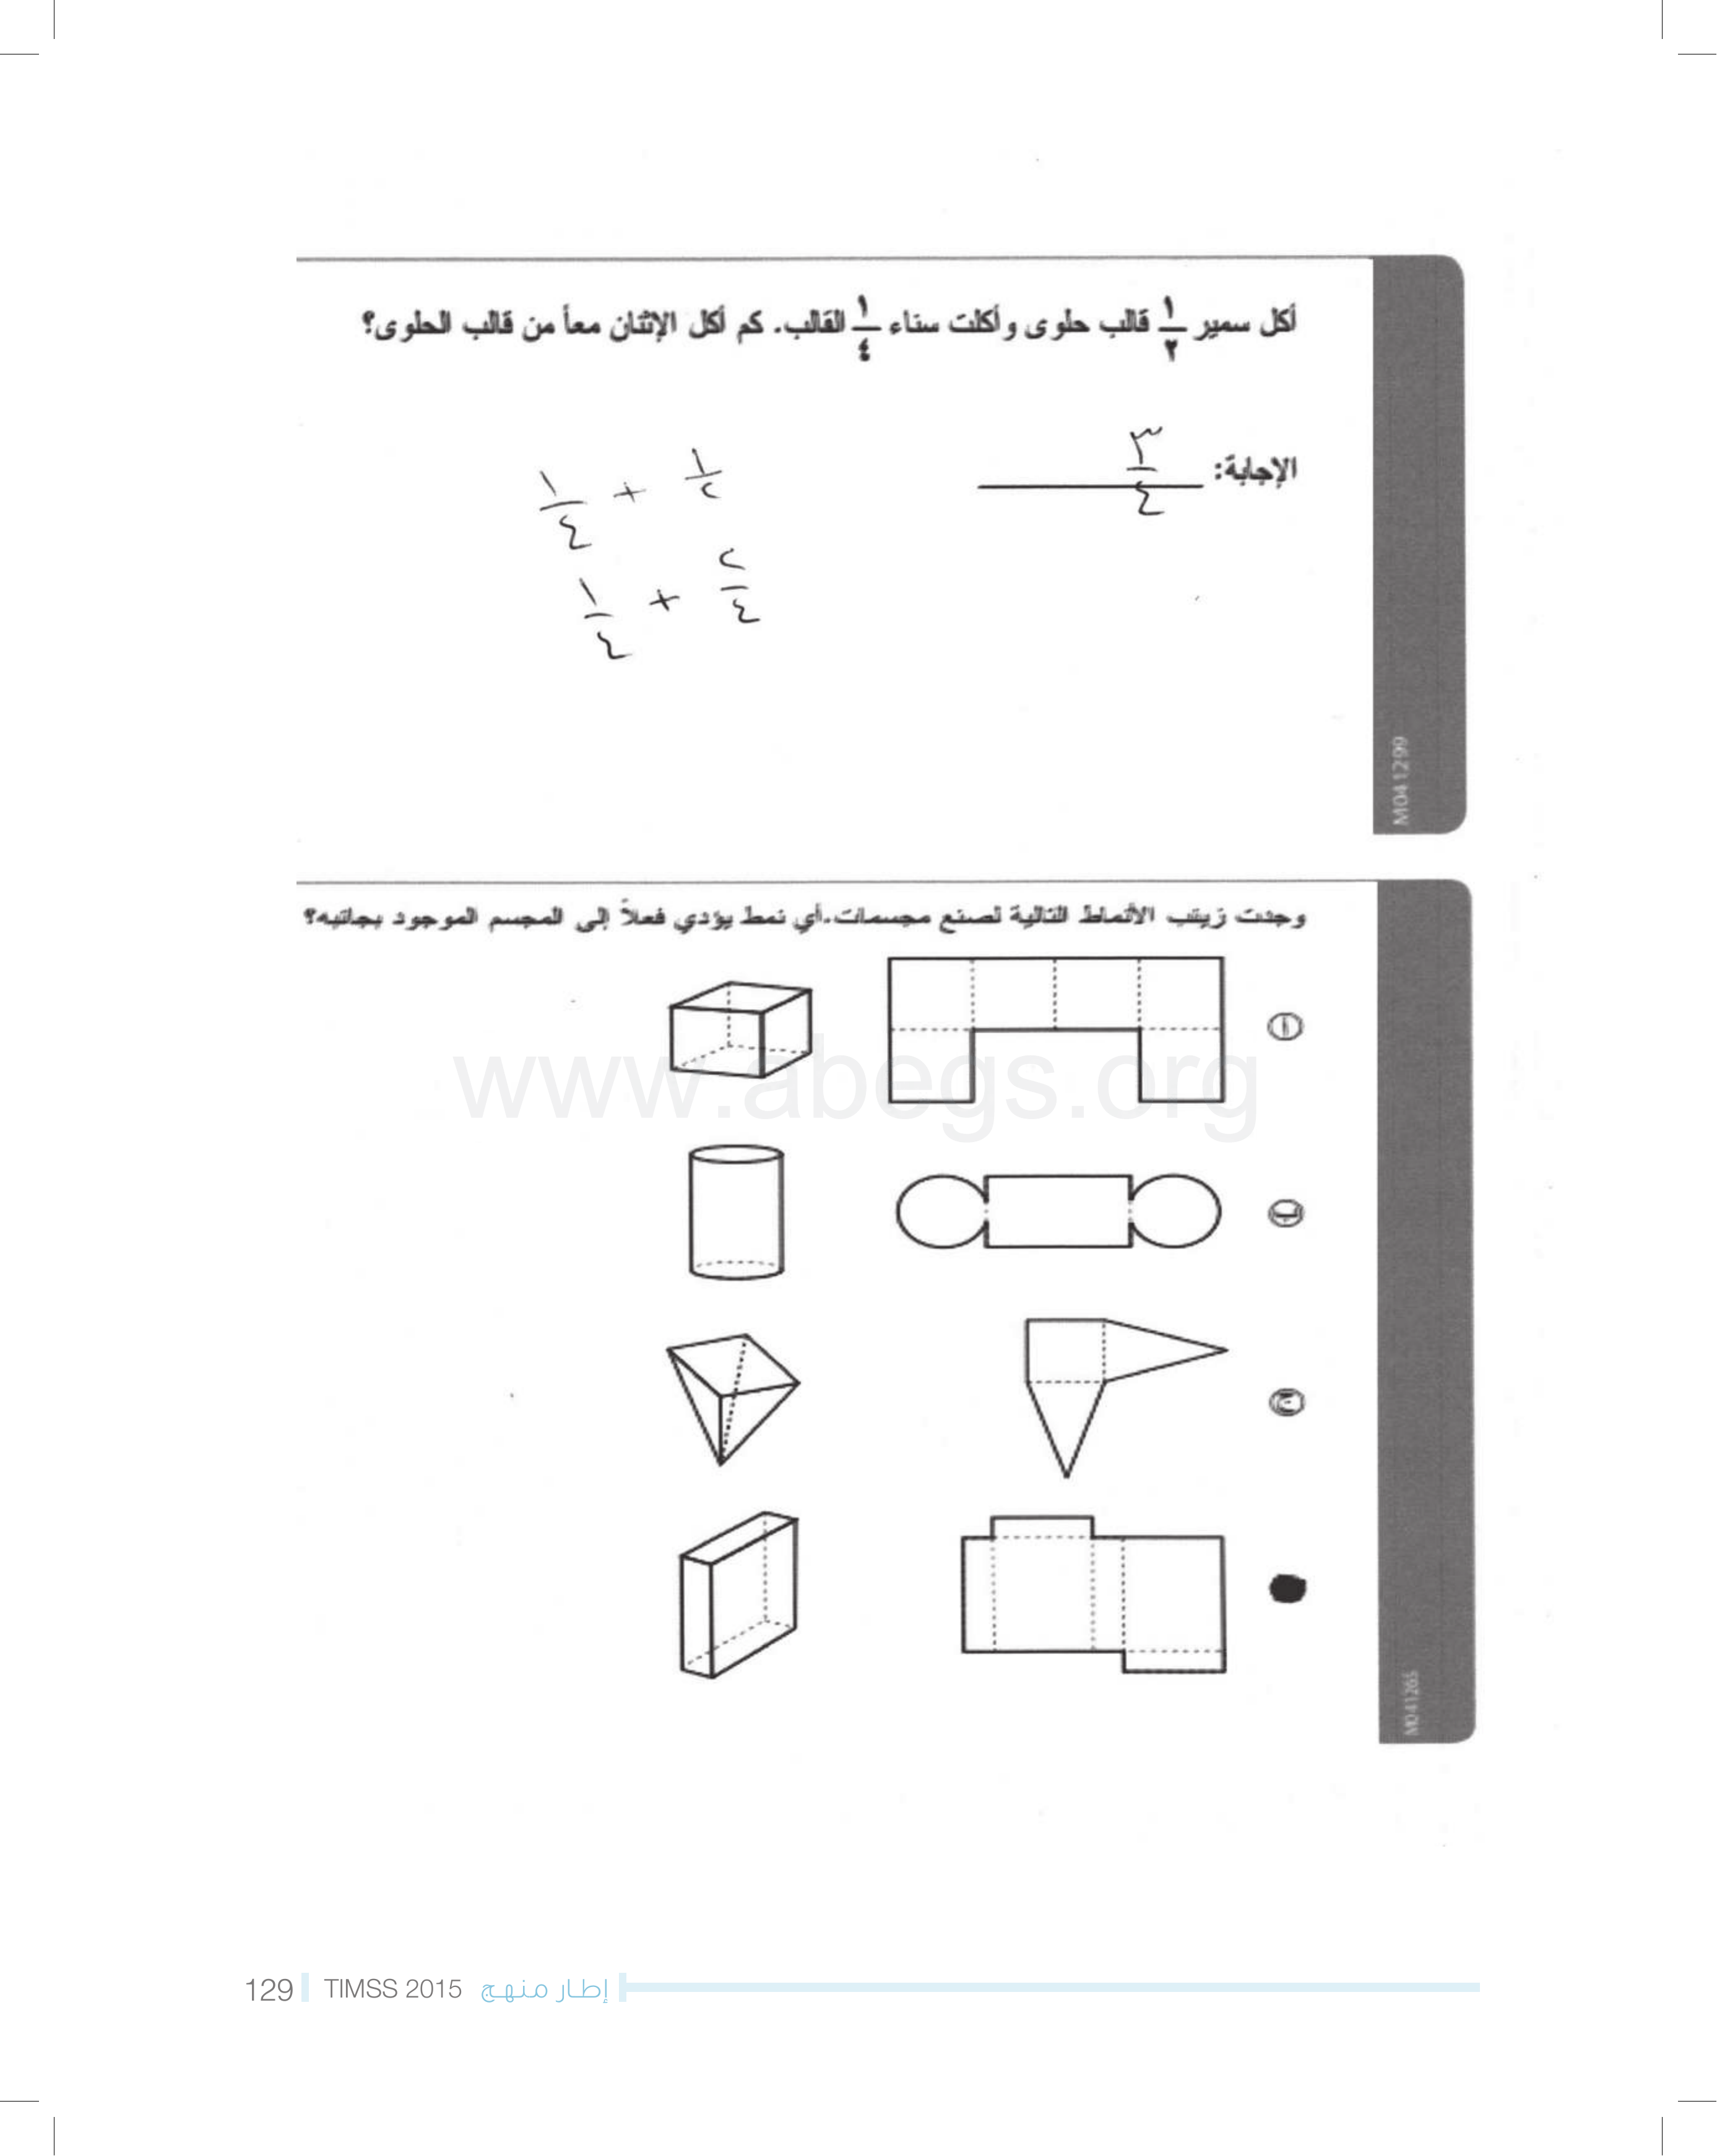 أكل سمير ١/٢ قالب حلوى وأكلت سناء ١/٤ القالب. كم أكل الإثنان معاً من قالب الحلوى؟
الإجابة: ٣/٤
١/٢ + ١/٤
٢/٤ + ١/٤
M041299
وجدت زينب الأنماط التالية لصنع مجسمات. أي نمط يؤدي فعلاً إلى المجسم الموجود بجانبه؟
أ
ب
ج
M041265
www.abegs.org
إطار منهج TIMSS 2015 129